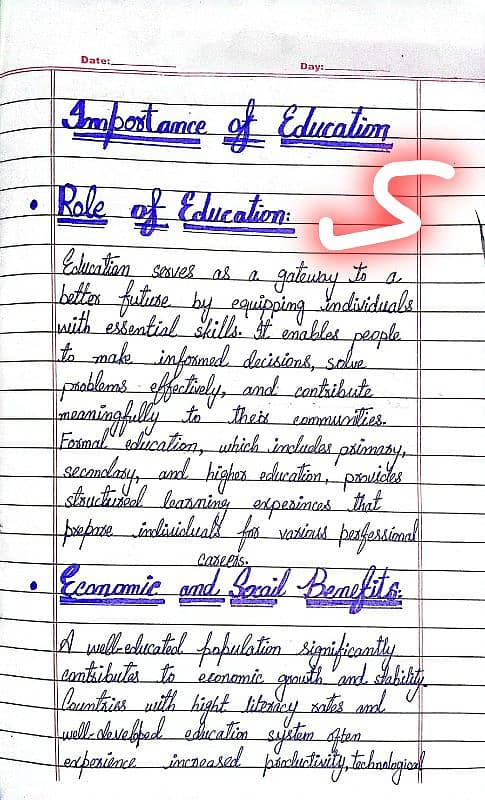 Date:
Day:
Importance of Education
• Role of Education:
S
Education serves as a gateway to a
better future by equipping individuals
with essential skills. It enables people
to make informed decisions, solve
problems effectively, and contribute
meaningfully to their communities.
Formal education, which includes primary,
secondary, and higher education, provides
structured learning experinces that
prepare individuals for various perfessional
careers.
• Economic and Socail Benefits:
A well-educated population significantly
contributes to economic growth and stability.
Countries with hight literacy rates and
well-develped education system often
experience increased productivity, technological